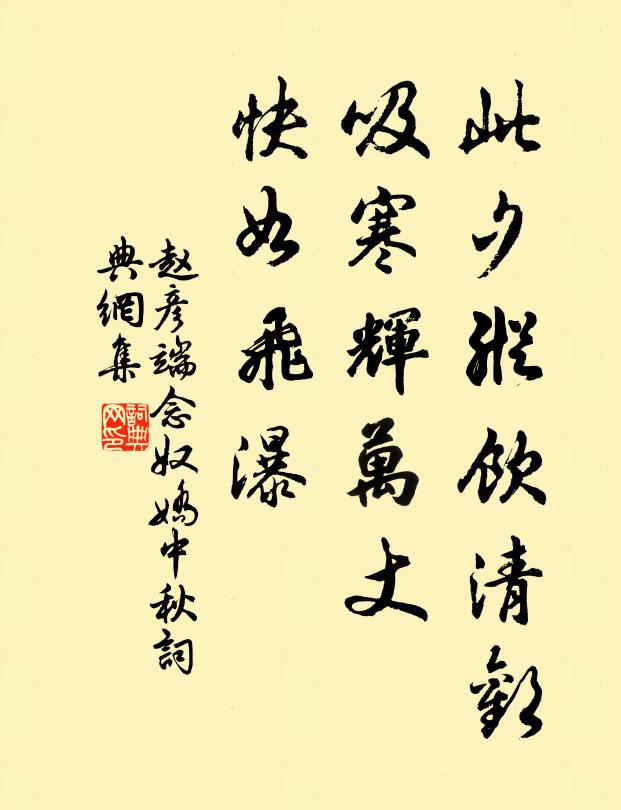 此夕縱飲清歡
吸寒輝萬丈
快如飛瀑
赵彦端念奴嬌中秋詞
典網集
詞典网印